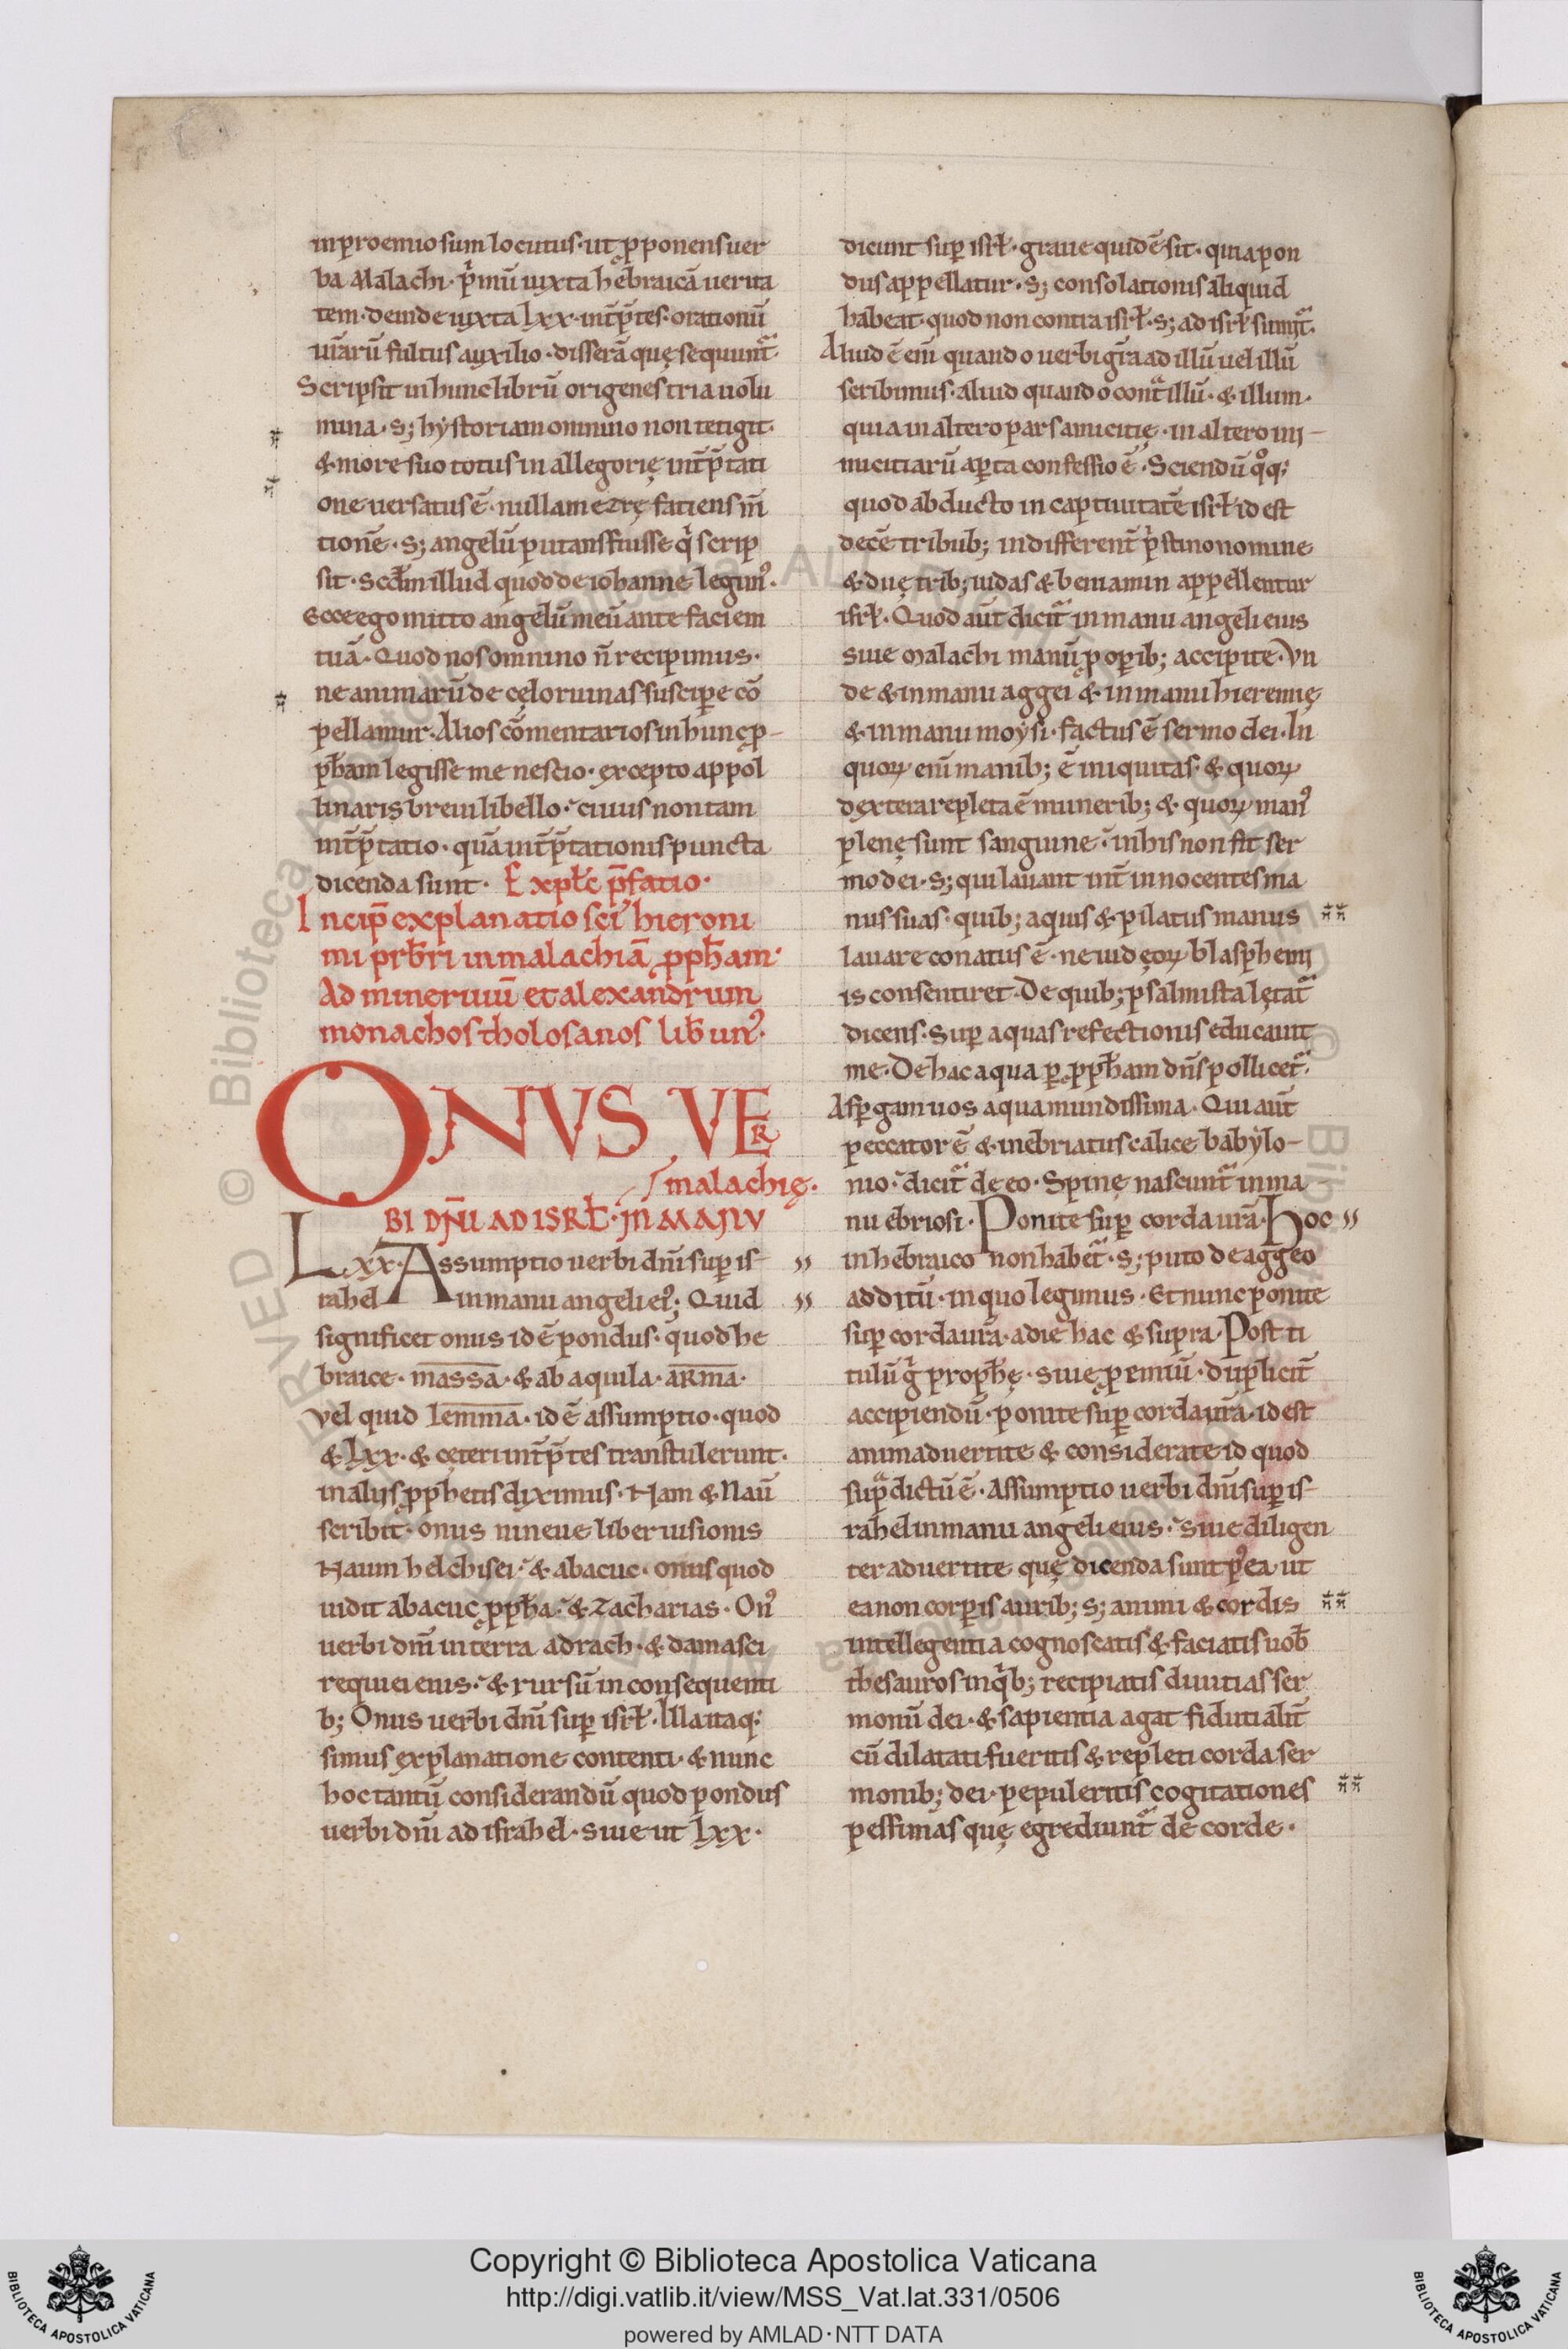 inproemio sum locutus· ut ꝓponens uer
ba Malachi· p̓mū iuxta hebraicā uerita
tem· deinde iuxta lxx· int̄p̄tes· orationū
ur̄arū fultus auxilio· disserā quę sequunt᷑·
Scripsit in hunc librū origenes tria uolu
mina· s; hẏstoriam omnino non tetigit·
& more suo totus in allegorię int̄p̄tati
one uersatus ē· nullam ezrę fatiens m̄
tionē· s; angelū putans fuisse q̓ scrip
sit· scd̄m illud quod de iohanne legim᾽·
Ecce ego mitto angelū meū ante faciem
tuā· Quod nos omnino n̄ recipimus·
ne animarū de cęlo ruinas suscip̲e cō
pellamur· Alios cōmentarios in hunc ꝓ-
ph̄am legisse me nescio· excepto appol
linaris breui libello· cuius non tam
int̄p̄tatio· quā int̄p̄tationis puncta
dicenda sunt· Explc̄ p̄fatio·
Incip̄ explanatio sc̄i hieroni
mi prb̄ri in malachiā ꝓph̄am·
Ad mineruiū et alexandrum
monachos tholosanos lib̄ un᾽·
ONVS VER
malachię·
BI DN̄I AD ISRL̄· IN MANV
Lxx· Assumptio uerbi dn̄i sup̲ is-
rahel in manu angeli ei᾽; Quid
significet onus id ē pondus· quod he
braice· massa· & ab aquila· aRma·
vel quid lemma· id ē assumptio· quod
& lxx· & cęteri int̄p̄tes transtulerunt·
in aliis ꝓphetis diximus· Nam & Naū
scribit· onus nineue liber uisionis
Naum helchisei· & abacuc· onus quod
uidit abacuc ꝓph̄a· & zacharias· On᾽
uerbi dn̄i in terra adrach· & damasci
requiei eius· & rursū in consequenti
b; Onus uerbi dn̄i sup̲ isrl̄· Illa itaq;
simus explanatione contenti· & nunc
hoc tantū considerandū quod pondus
uerbi dn̄i ad israhel· siue ut lxx·
dicunt sup̲ isrl̄· graue quidē sit· quia pon
dus appellatur· s; consolationis aliquid
habeat· quod non contra isrl̄· s; ad isrl̄ sumit᷑·
Aliud ē eni̅ quando uerbi gr̄a ad illū uel illū
scribimus· aliud quando cont᷑ illū· & illum·
quia in altero pars amicitię· in altero ini-
micitiarū ap̲ta confessio ē· Sciendū qͦq;
quod abducto in captiuitatē isrl̄ id est
decē tribub; indifferent̄ p̓stino nomine
& duę trib; iudas & beniamin appellentur
isrl̄· Quod aut̄ dicit᷑ in manu angeli eius
siue malachi manū ꝓ op̲ib; accipite· Vn
de & in manu aggei & in manu hieremię
& in manu moẏsi· factus ē sermo dei· In
quoꝝ eni̅ manib; ē iniquitas· & quoꝝ
dextera repleta ē munerib; & quoꝝ man᾽
plenę sunt sanguine· in his non fit ser
mo dei· s; qui lauant int̄ innocentes ma
nus suas· quib; aquis & pilatus manus
lauare conatus ē· ne iudęoꝝ blasphemi
is consentiret· De quib; psalmista lętat᷑
dicens· Sup̲ aquas refectionis educauit
me· De hac aqua p̲ ꝓph̄am dn̄s pollicet᷑·
Asp̲gam uos aqua mundissima· Qui aut̄
peccator ē & inebriatus calice babẏlo-
nio· dicit᷑ de eo· Spinę nascunt᷑ in ma
nu ebriosi· Ponite sup̲ corda ur̄a· Hoc
in hebraico non habet᷑· s; puto de aggeo
additū· in quo legimus· Et nunc ponite
sup̲ corda ur̄a· a die hac & supra· Post ti
tulū g̓ proph̄ę· siue ꝓemiū· duplicit̄
accipiendū· ponite sup̲ corda ur̄a· id est
animaduertite & considerate id quod
sup᷑ dictū ē· Assumptio uerbi dn̄i sup̲ is-
rahel in manu angeli eius· siue diligen
ter aduertite quę dicenda sunt p᾽ea· ut
ea non corp̲is aurib; s; animi & cordis
intellegentia cognoscatis & faciatis uob̄
thesauros in q̓b; recipiatis diuitias ser
monū dei· & sapientia agat fidutialit̄
cū dilatati fueritis & repleti corda ser
monib; dei· pepuleritis cogitationes
pessimas quę egrediunt᷑ de corde·
Copyright © Biblioteca Apostolica Vaticana
http://digi.vatlib.it/view/MSS_Vat.lat.331/0506
powered by AMLAD·NTT DATA
BIBLIOTECA APOSTOLICA VATICANA
BIBLIOTECA APOSTOLICA VATICANA